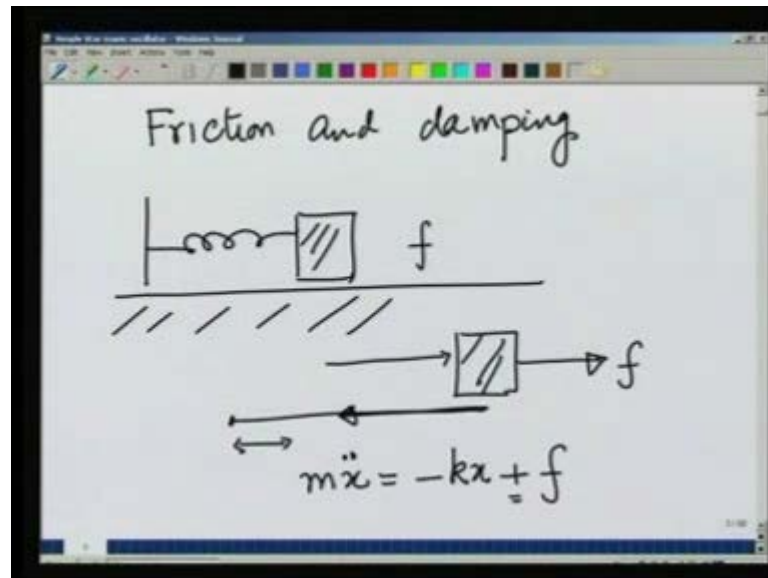 Friction and damping
f
f
mẍ = -kx + f